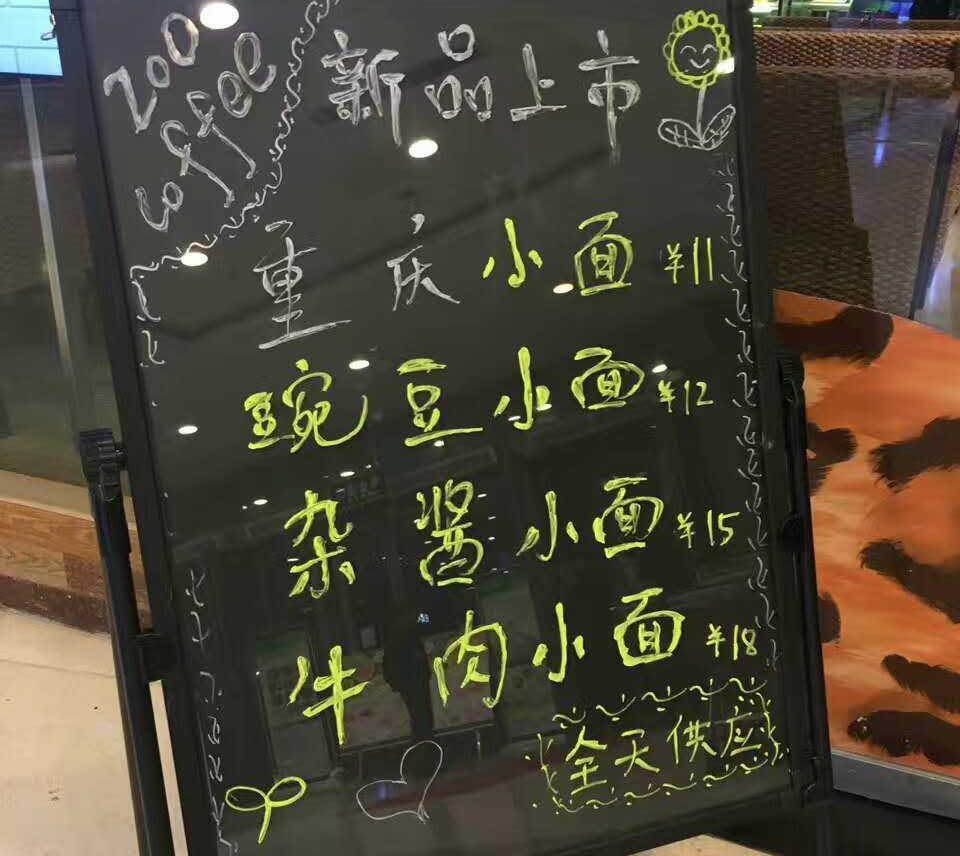 zoo
coffee
新品上市
重庆小面 ¥11
豌豆小面 ¥12
杂酱小面 ¥15
牛肉小面 ¥18
全天供应